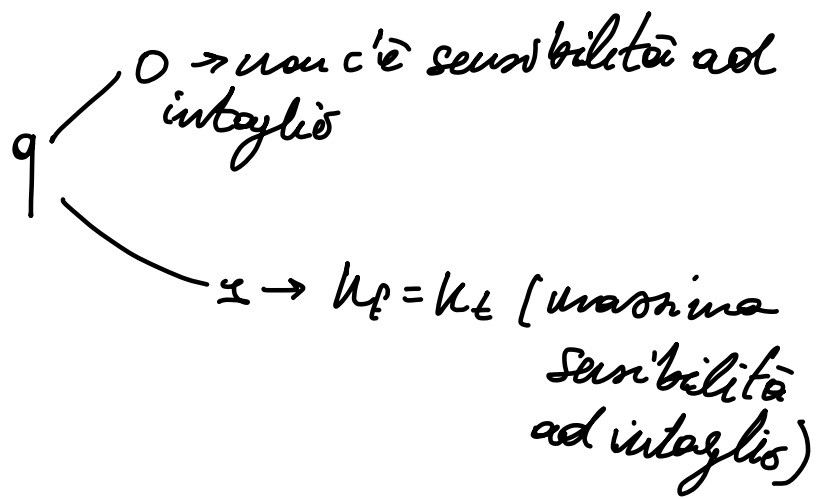 0 → non c'è sensibilità ad
intaglio
q
1 → Kf = Kt (massima
sensibilità
ad intaglio)